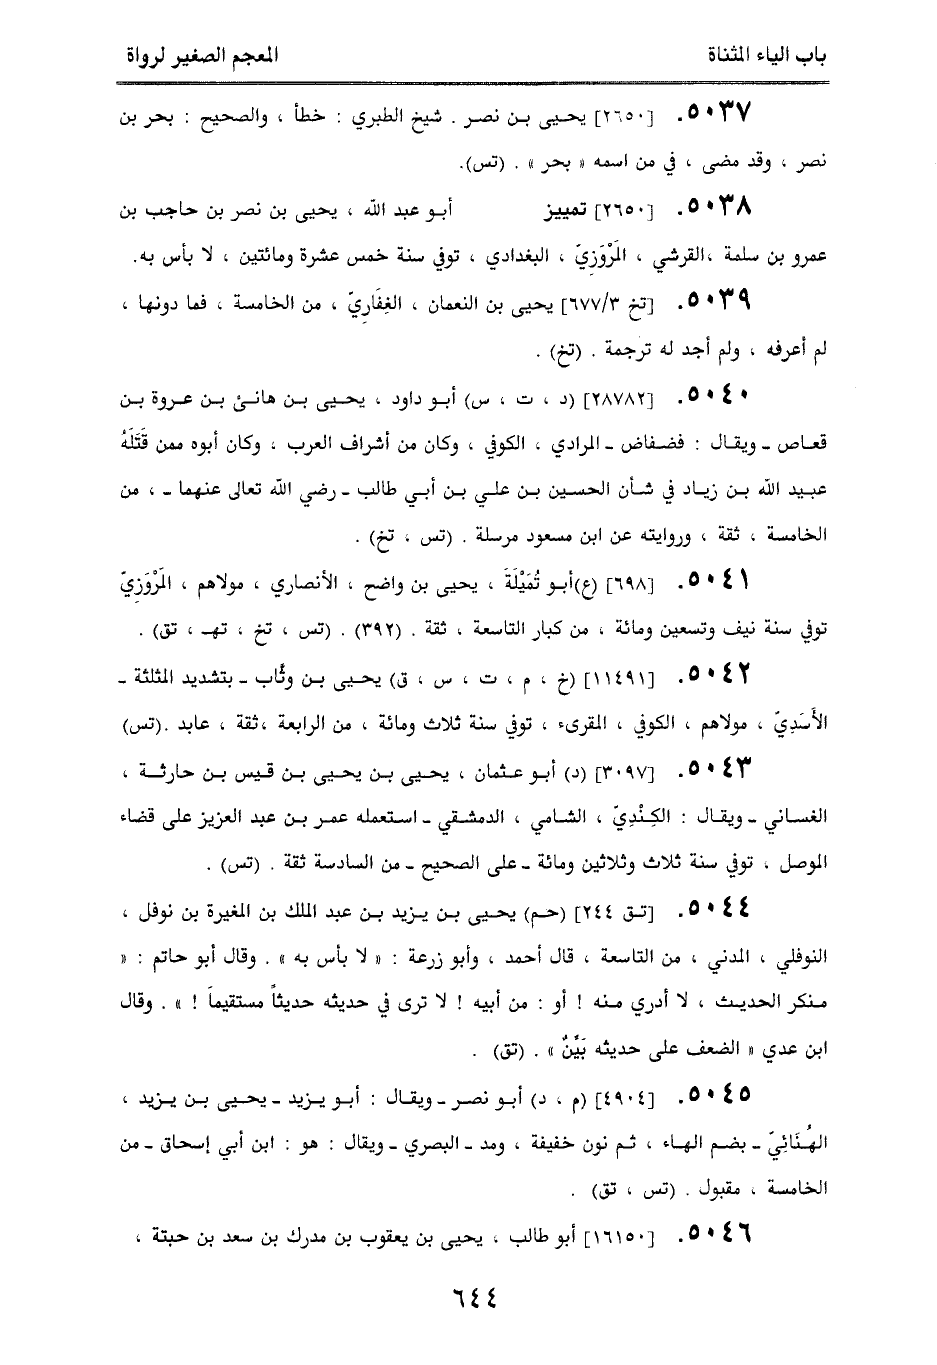 باب الياء المثناة
المعجم الصغير لرواة
٥٠٣٧. [٢٦٥٠] يحيى بن نصر . شيخ الطبري : خطأ ، والصحيح : بحر بن
نصر ، وقد مضى ، في من اسمه « بحر » . (تس).
٥٠٣٨. [٢٦٥٠] تمييز أبو عبد الله ، يحيى بن نصر بن حاجب بن
عمرو بن سلمة ،القرشي ، المَرْوَزِيّ ، البغدادي ، توفي سنة خمس عشرة ومائتين ، لا بأس به.
٥٠٣٩. [تخ ٦٧٧/٣] يحيى بن النعمان ، الغِفَاريّ ، من الخامسة ، فما دونها ،
لم أعرفه ، ولم أجد له ترجمة . (تخ) .
٥٠٤٠. [٢٨٧٨٢] (د ، ت ، س) أبو داود ، يحيى بن هانئ بن عروة بن
قعاص ـ ويقال : فضفاض ـ المرادي ، الكوفي ، وكان من أشراف العرب ، وكان أبوه ممن قَتَلَهُ
عبيد الله بن زياد في شأن الحسين بن علي بن أبي طالب ـ رضي الله تعالى عنهما ـ ، من
الخامسة ، ثقة ، وروايته عن ابن مسعود مرسلة . (تس ، تخ) .
٥٠٤١. [٦٩٨] (ع)أبو تُمَيْلَةَ ، يحيى بن واضح ، الأنصاري ، مولاهم ، المَرْوَزِيّ
توفي سنة نيف وتسعين ومائة ، من كبار التاسعة ، ثقة . (٣٩٢) . (تس ، تخ ، تهـ ، تق) .
٥٠٤٢. [١١٤٩١] (خ ، م ، ت ، س ، ق) يحيى بن وثَّاب ـ بتشديد المثلثة ـ
الأَسَدِيّ ، مولاهم ، الكوفي ، المقرىء ، توفي سنة ثلاث ومائة ، من الرابعة ،ثقة ، عابد .(تس)
٥٠٤٣. [٣٠٩٧] (د) أبو عثمان ، يحيى بن يحيى بن قيس بن حارثة ،
الغساني ـ ويقال : الكِنْدِيّ ، الشامي ، الدمشقي ـ استعمله عمر بن عبد العزيز على قضاء
الموصل ، توفي سنة ثلاث وثلاثين ومائة ـ على الصحيح ـ من السادسة ثقة . (تس) .
٥٠٤٤. [تق ٢٤٤] (حم) يحيى بن يزيد بن عبد الملك بن المغيرة بن نوفل ،
النوفلي ، المدني ، من التاسعة ، قال أحمد ، وأبو زرعة : « لا بأس به » . وقال أبو حاتم : «
منكر الحديث ، لا أدري منه ! أو : من أبيه ! لا ترى في حديثه حديثاً مستقيماً ! » . وقال
ابن عدي « الضعف على حديثه بَيِّنٌ » . (تق) .
٥٠٤٥. [٤٩٠٤] (م ، د) أبو نصر ـ ويقال : أبو يزيد ـ يحيى بن يزيد ،
الهُنَائِيّ ـ بضم الهاء ، ثم نون خفيفة ، ومد ـ البصري ـ ويقال : هو : ابن أبي إسحاق ـ من
الخامسة ، مقبول . (تس ، تق) .
٥٠٤٦. [١٦١٥٠] أبو طالب ، يحيى بن يعقوب بن مدرك بن سعد بن حبتة ،
٦٤٤